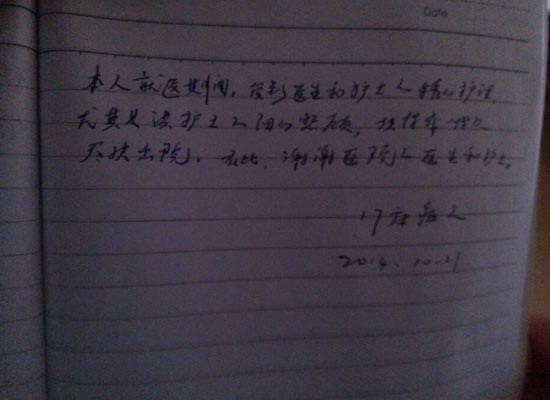 Date
本人就医期间,受到医生和护士人精心护理
尤其是护士人细心照顾,使得本人
尽快出院。在此,谢谢医院人医生和护士。
17床病人
2014.10.21